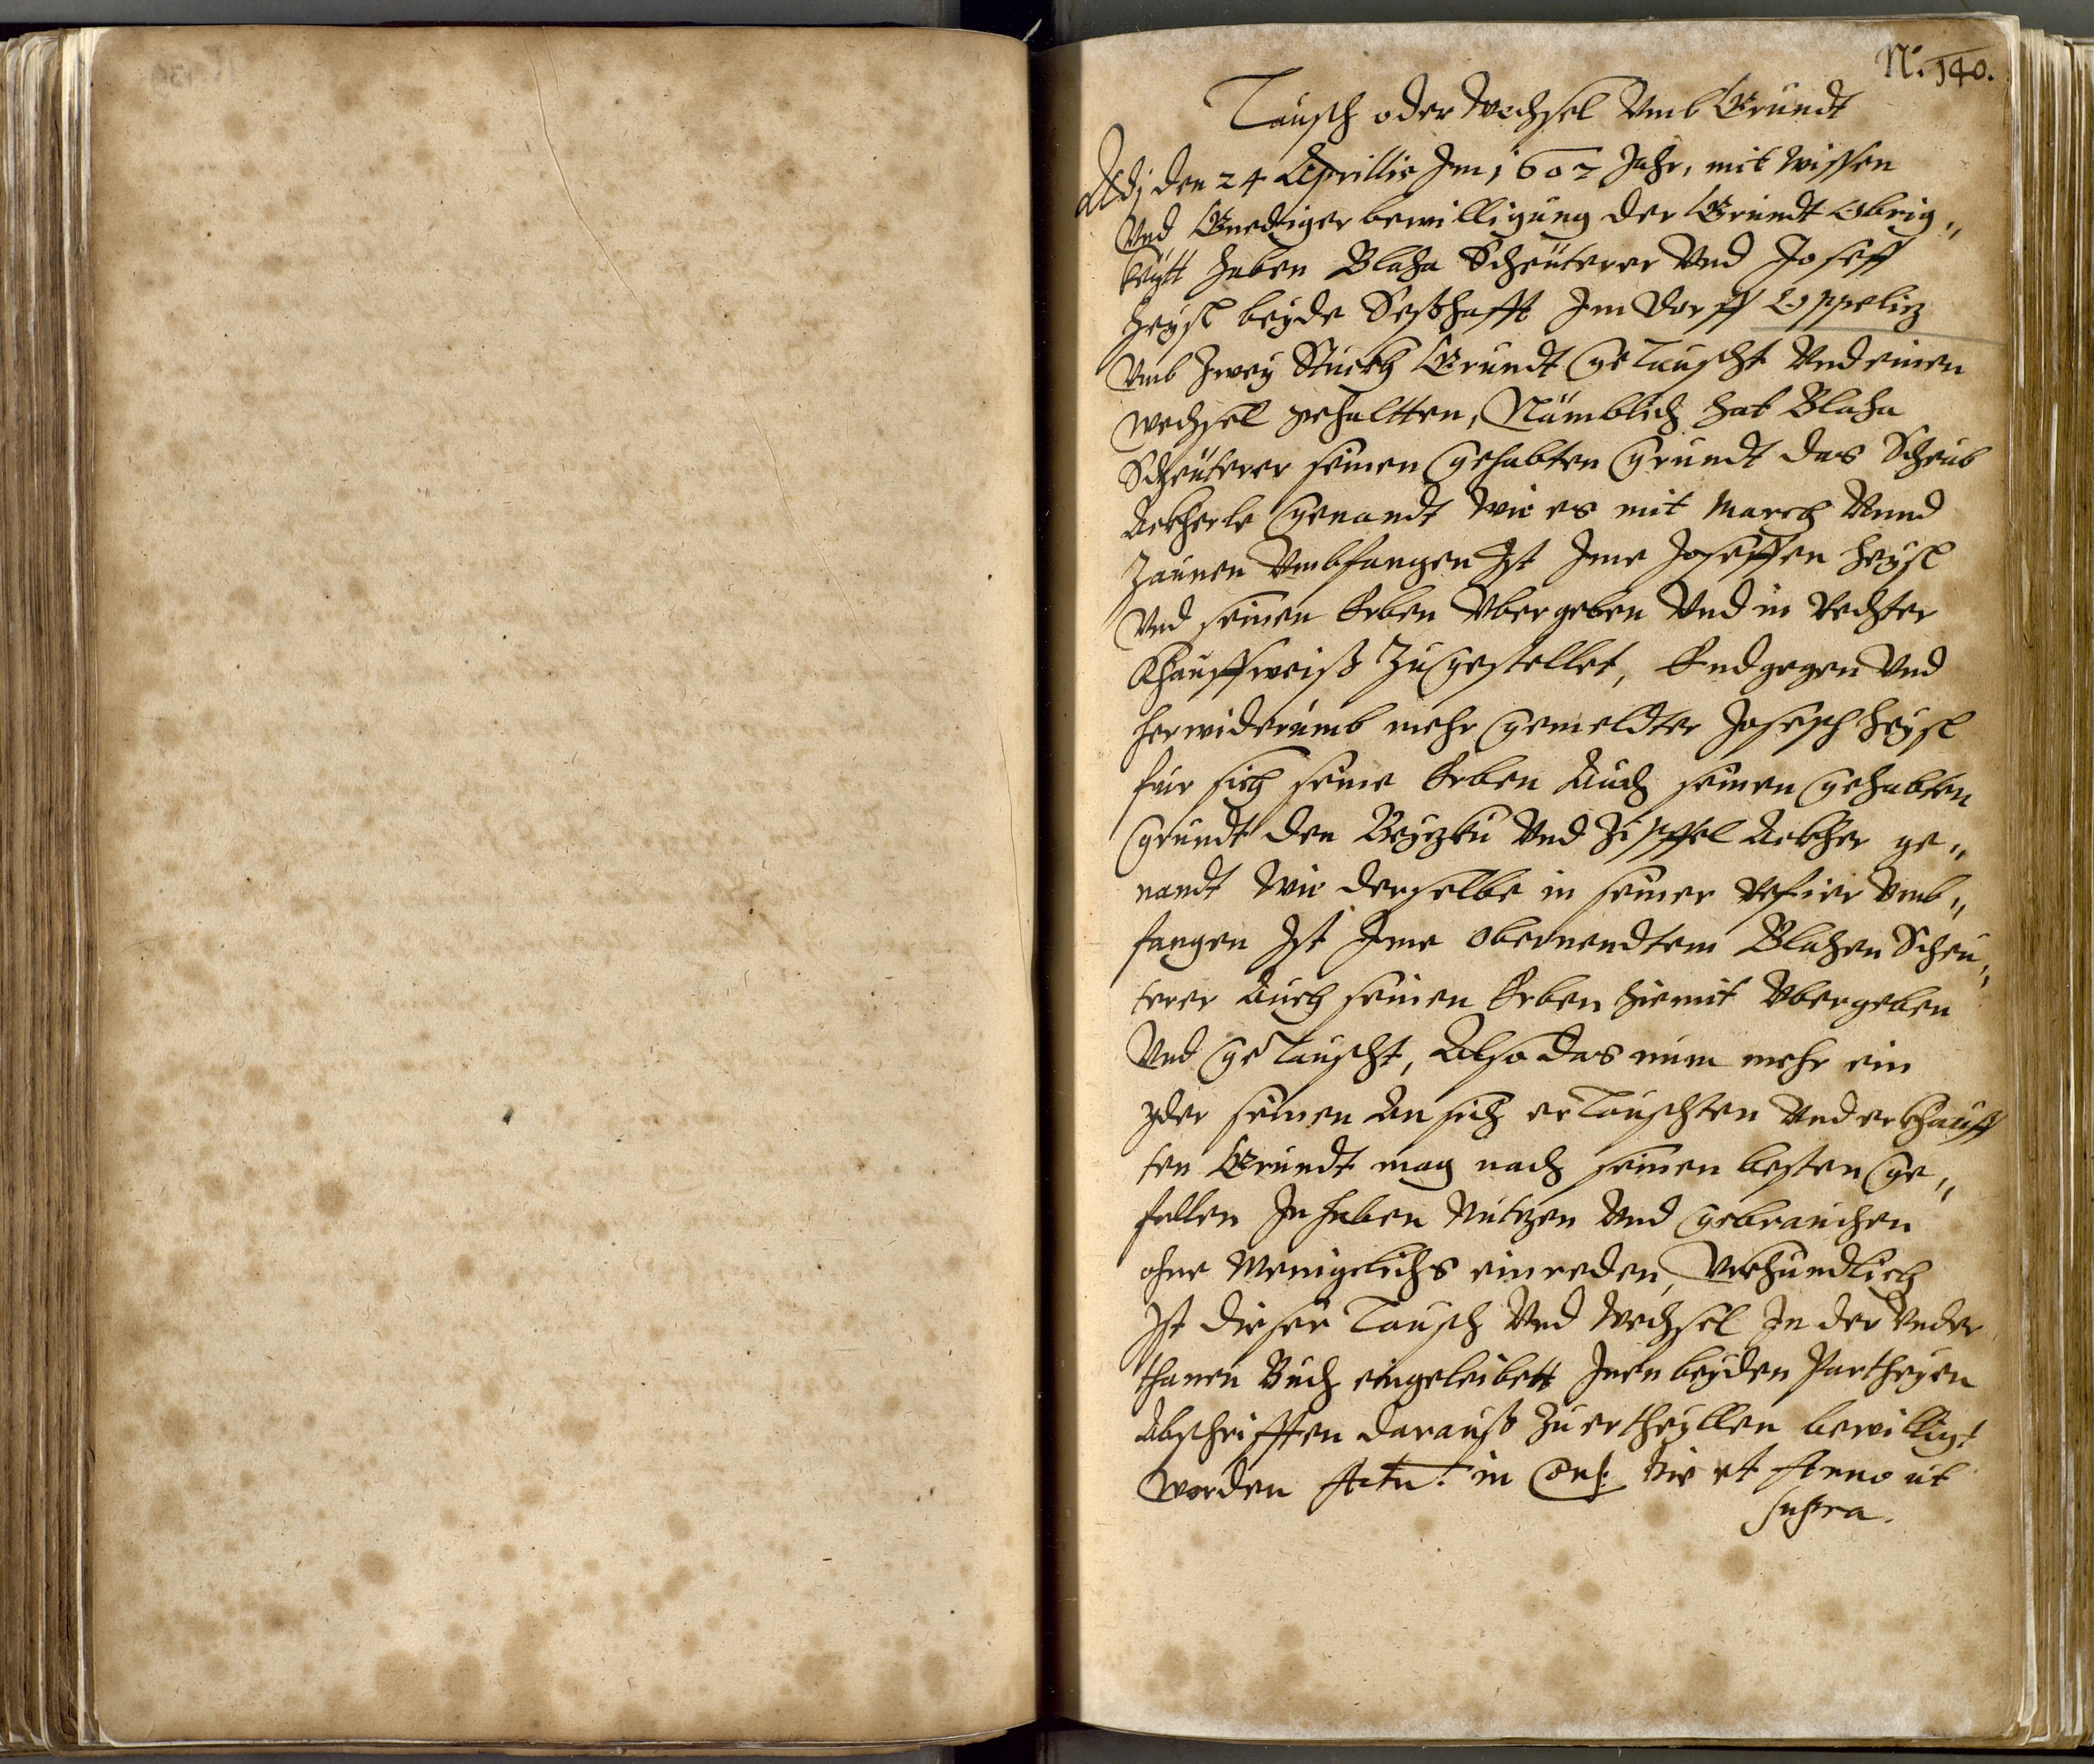 N: 140.
Tausch oder Wechsel Vmb Grundt
Adj den 24 Aprillis Im 1607 Jahr, mit wissen
Vnd Gnediger bewilligung der Grundt Obrig„
keytt haben Blaha Scheüterer Vnd Joseff
Heysl beyde Seßhafft Im dorff Oppeliz
Vmb Zwey Stuckh Grundt getauscht Vnd einen
wechsel gehaltten, Nämblich hat Blaha
Scheüterer seinen gehabten grundt das Scheub
Ackherle genandt wie es mit March Vnnd
Zaunen Vmbfangen Ist Ime Joseffen Heysl
Vnd seinen Erben Vbergeben Vnd in Rechter
Khauffweiß Zugestellet, Endgegen Vnd
herwiderumb mehr gemeldter Joseph Heysl
für sich seine Erben Auch seinen gehabten
grundt den Vnd Zipffel Ackher ge„
nandt wie derselbe in seiner refier Vmb„
fangen Ist Ime obernendtem Blahen Scheu„
terer Auch seinen Erben hiemit Vbergeben
Vnd getauscht, Also das nun mehr ein
yder seinen An sich ertauschten Vnd erkhauff
ten Grundt mag nach seinen besten ge„
fallen Inhaben Nutzen Vnd gebrauchen
ohne Menigelichs einreden, Vrkhundlich
Ist dieser Tausch Vnd Wechsel In der Vnder
thanen Buch eingeleibett Inen beyden Partheyen
Abschrifften darauß Zuertheyllen bewilligt
worden Actu: in die et Anno ut
supra.